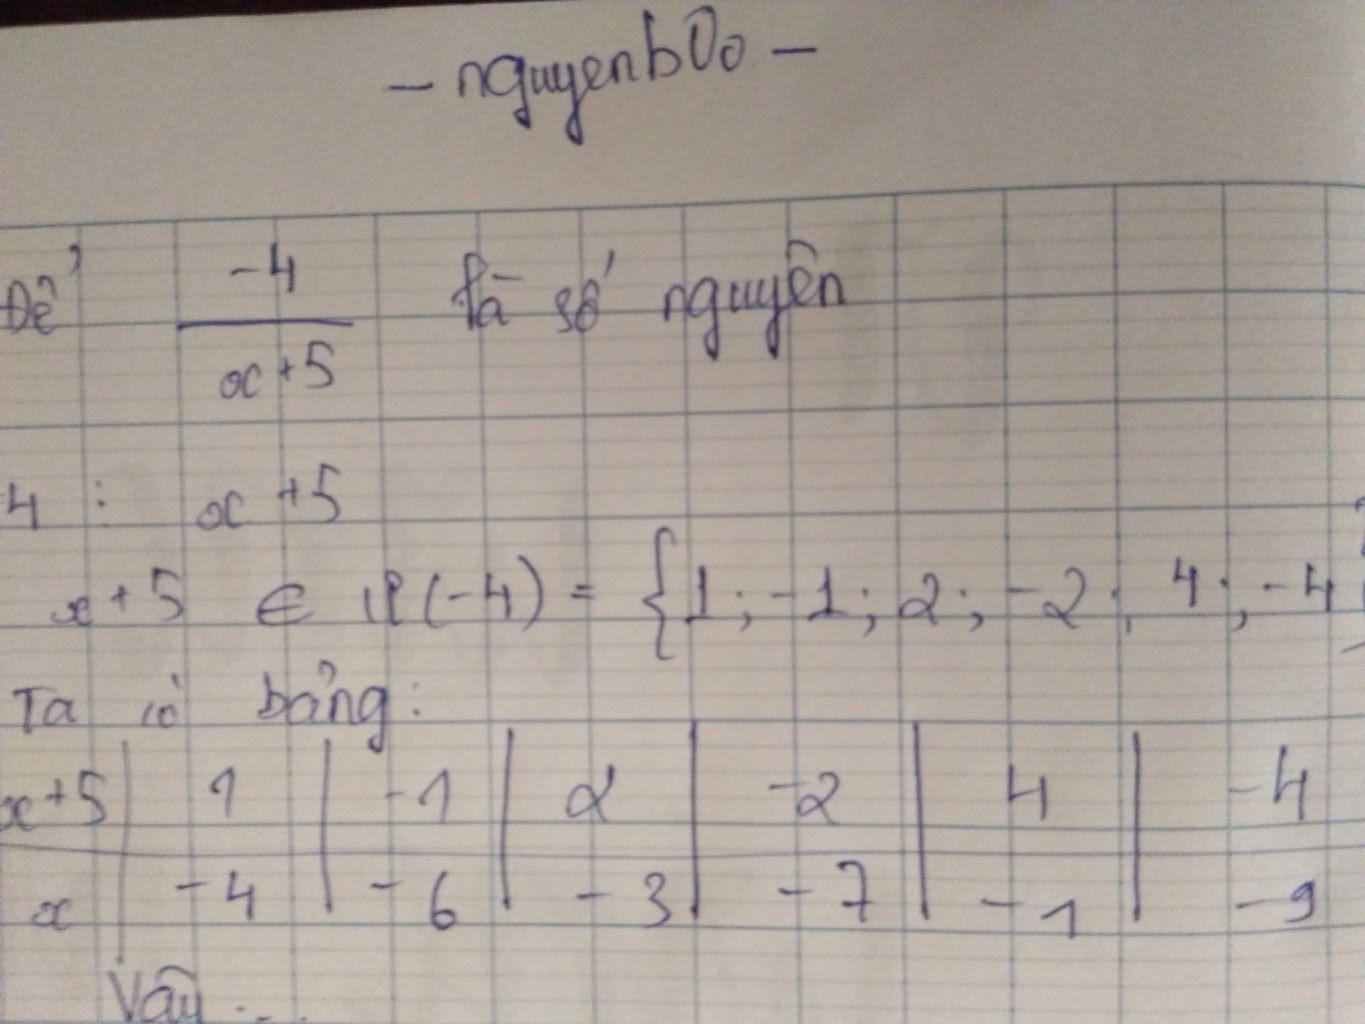 - nguyenb00 -
Để -4/x+5 là số nguyên
4 : x +5
x+5 ∈ Ư(-4) = {1; -1; 2; -2; 4; -4}
Ta có bảng:
x+5 | 1 | -1 | 2 | -2 | 4 | -4
x | -4 | -6 | -3 | -7 | -1 | -9
Vậy...